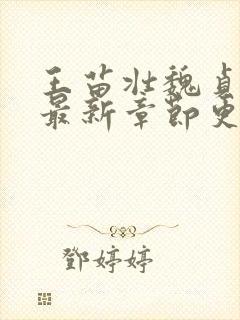 王苗壮魏贞
最新章节更
鄧婷婷